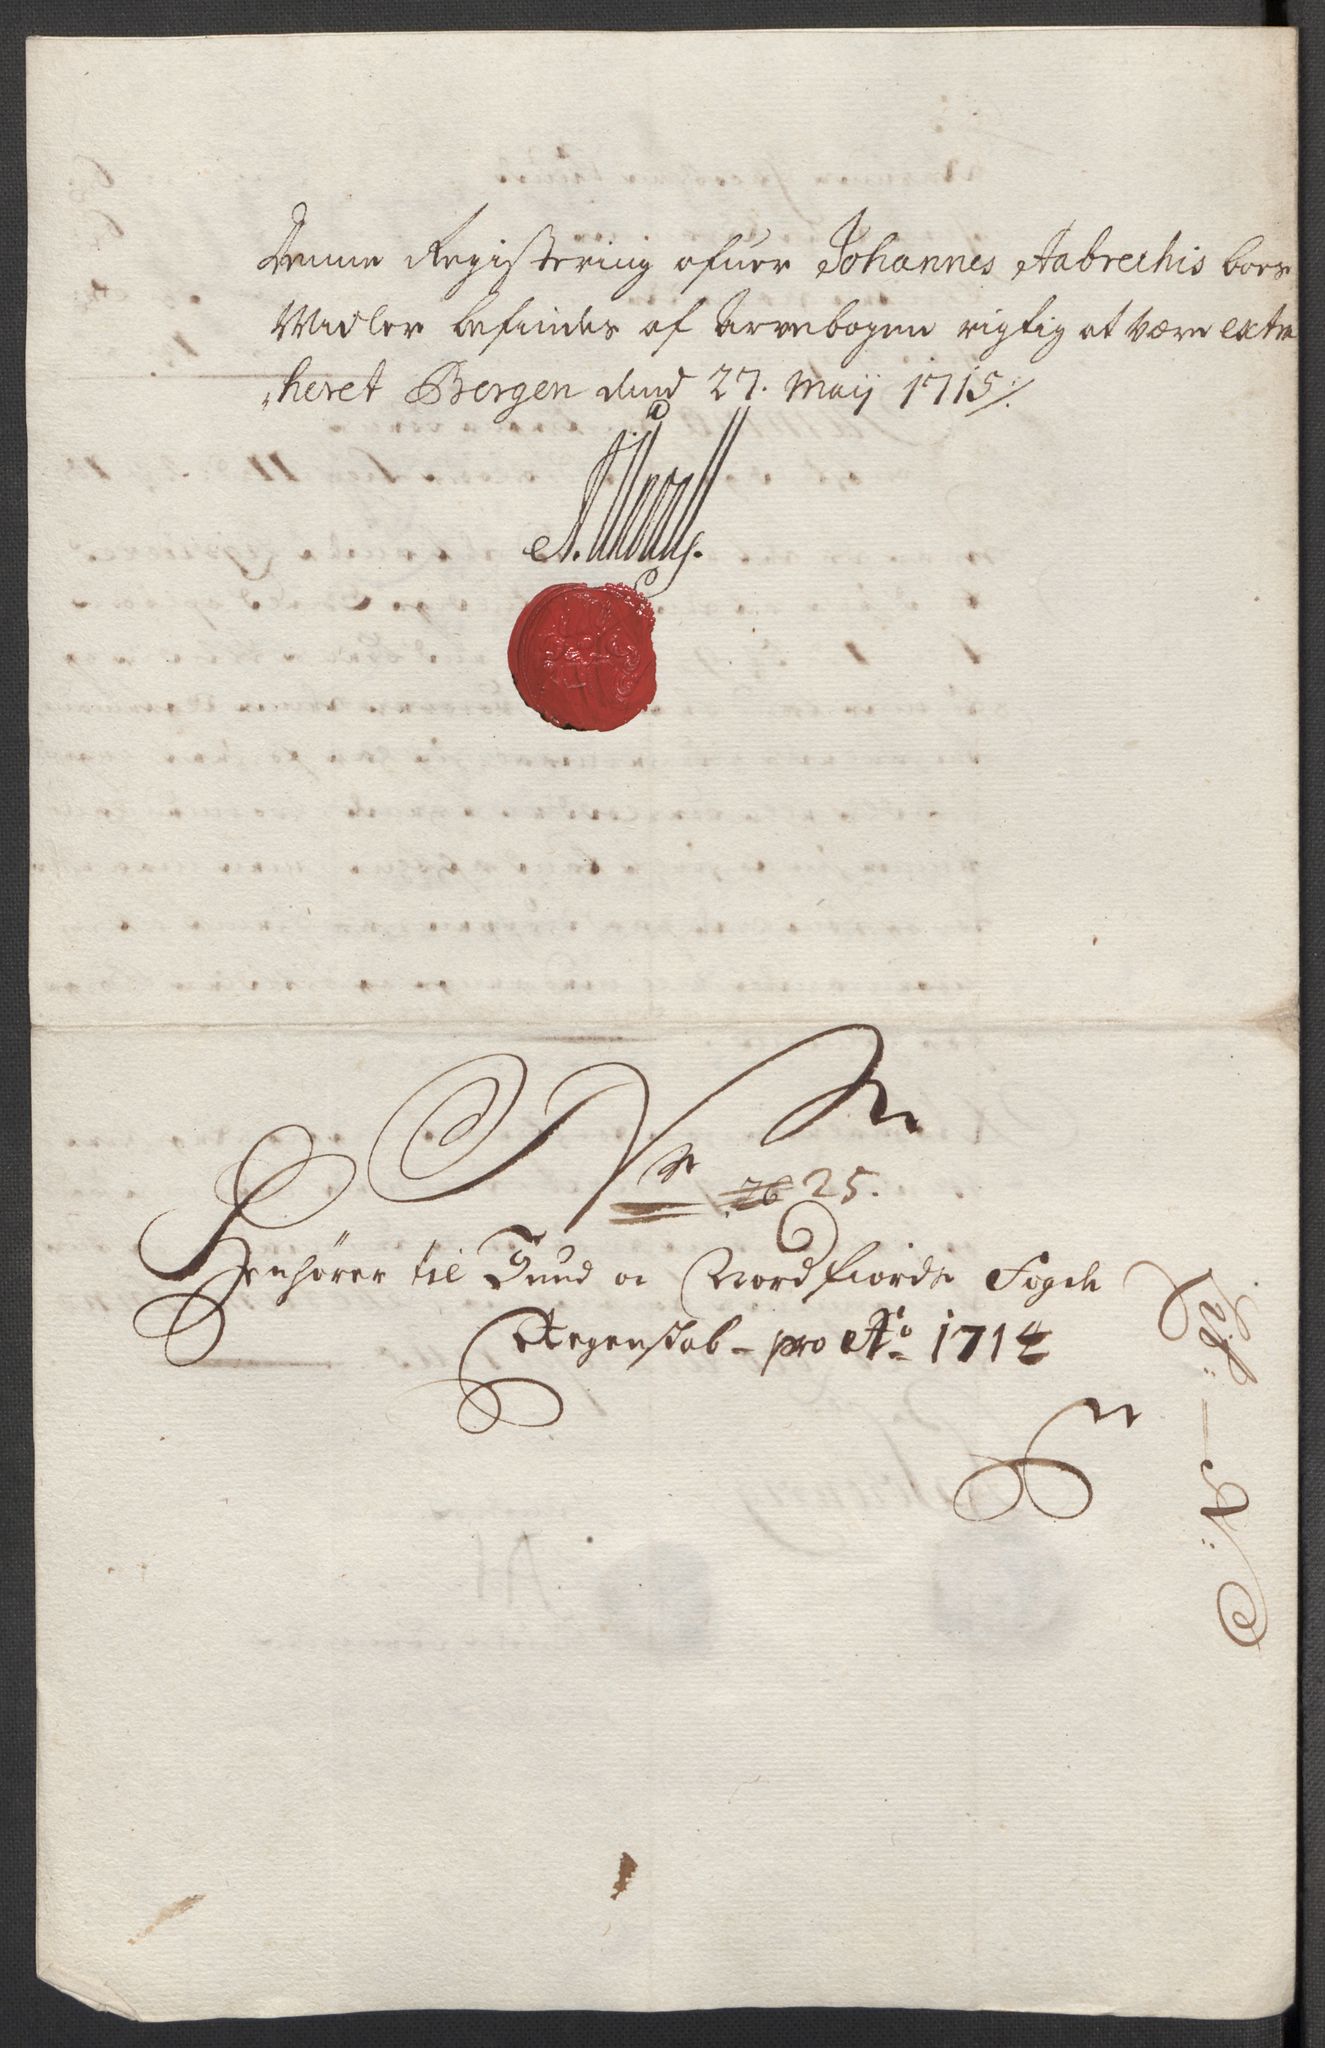 Denne Registering ofuer Johannes Aabrechis boes
Midler befindes af Arvebogen rigtig at være extra
heret Bergen dend 27. Maij 1715
No 25.
Henhører til Sund oc Nordfiords Fogde
Regenskab pro Ao 1714